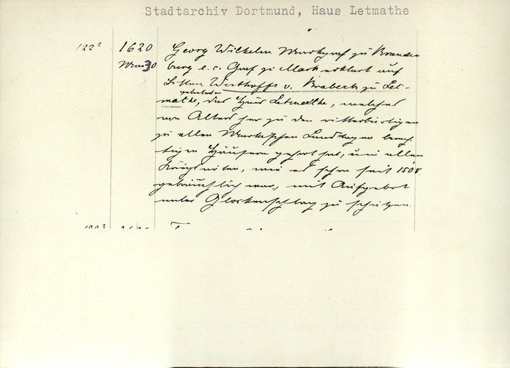 Stadtarchiv Dortmund, Haus Letmathe
122² 1620 Georg Wilhelm Markgraf zu Branden
Mai 30 burg e.c. Graf zu Mark erklärt auf
Bitten Westhoffs v. Brabeck zu Let-
mathe, das Haus Letmathe, welches
von Alters her zu den ritterbürtigen
zu allen Märkischen Landtagen berech
tigten Häusern gehört hat, in allen
Kriegszeiten, wie es schon seit 1508
gebräuchlich war, mit Aufgebot
unter Glockenschlag zu schützen